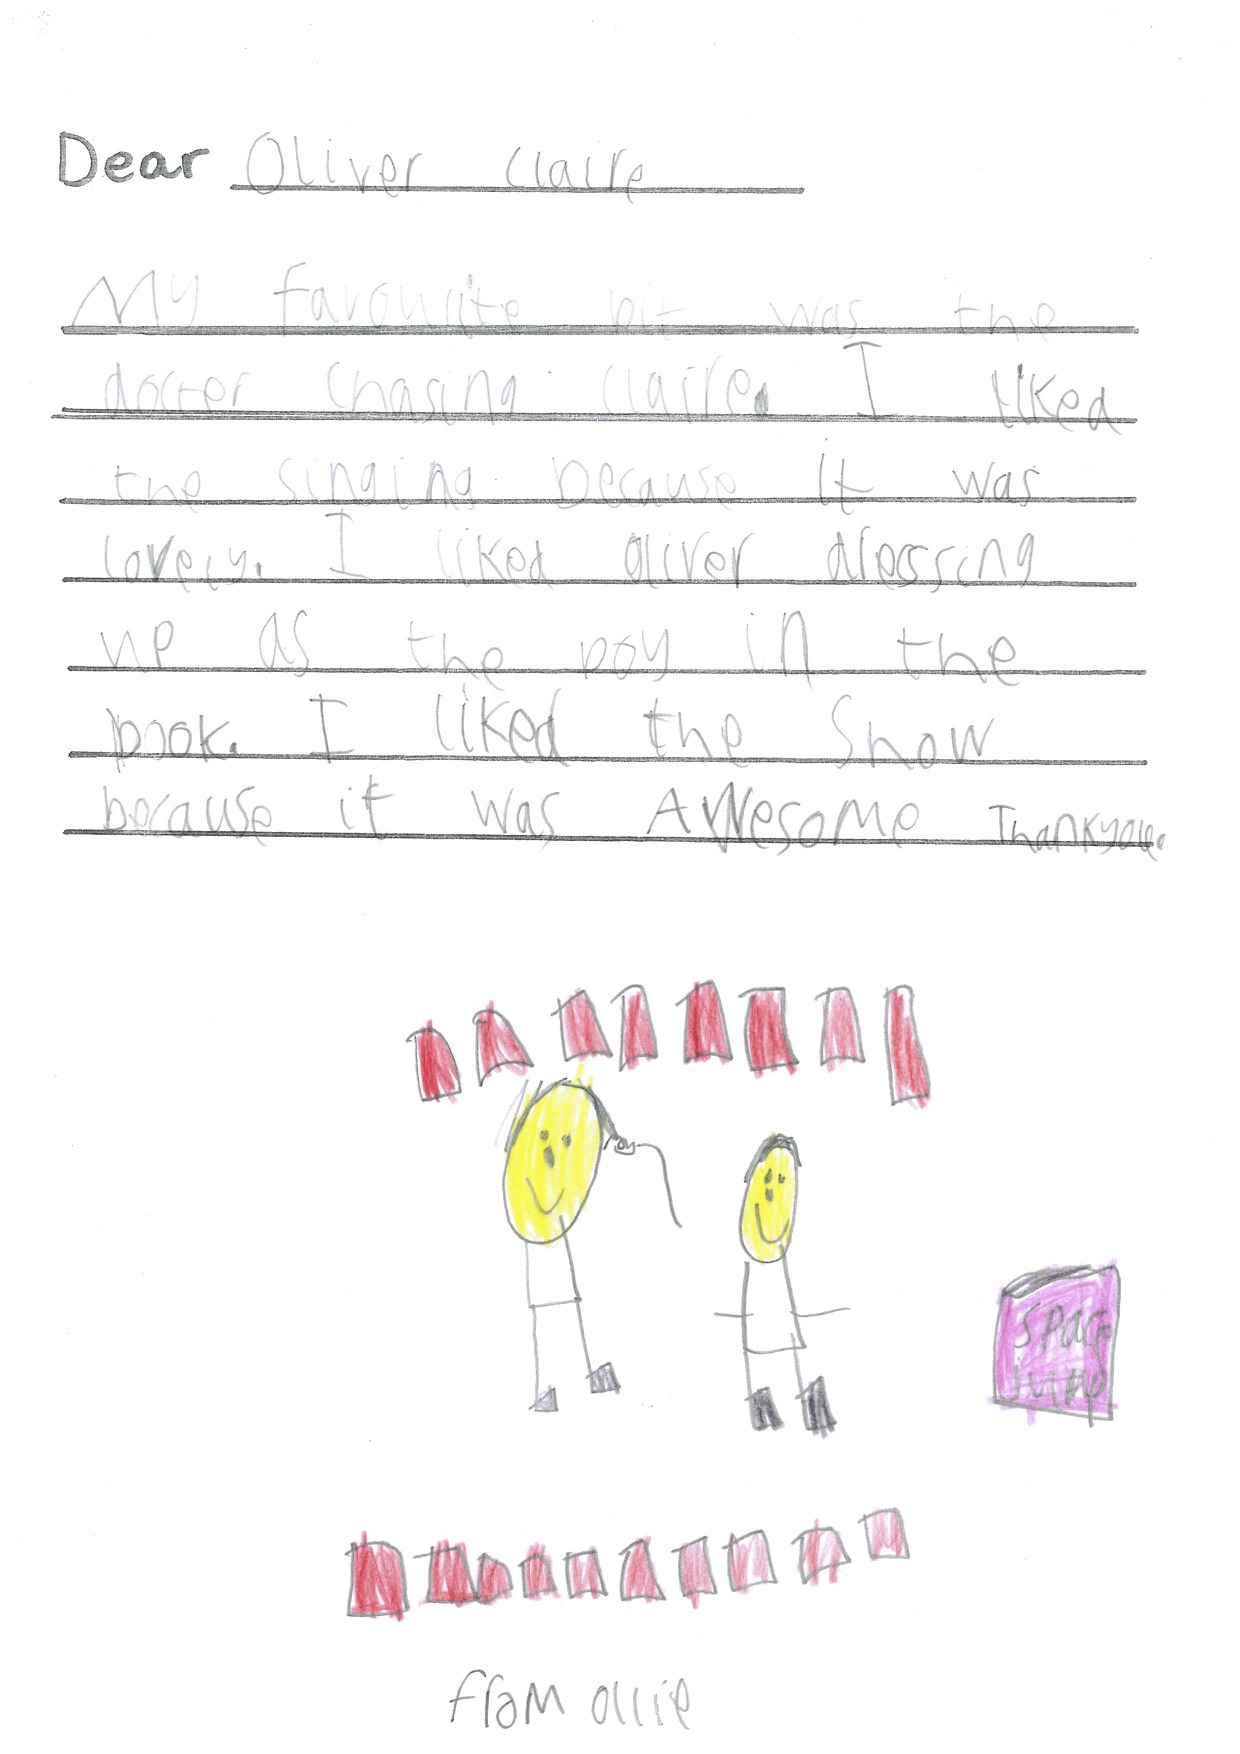 Dear Oliver Claire
My favourite bit was the
docter chasing claire. I liked
the singing because it was
lovely. I liked oliver dressing
up as the boy in the
book. I liked the Show
because it was AWesome Thankyou.
Space
from ollie